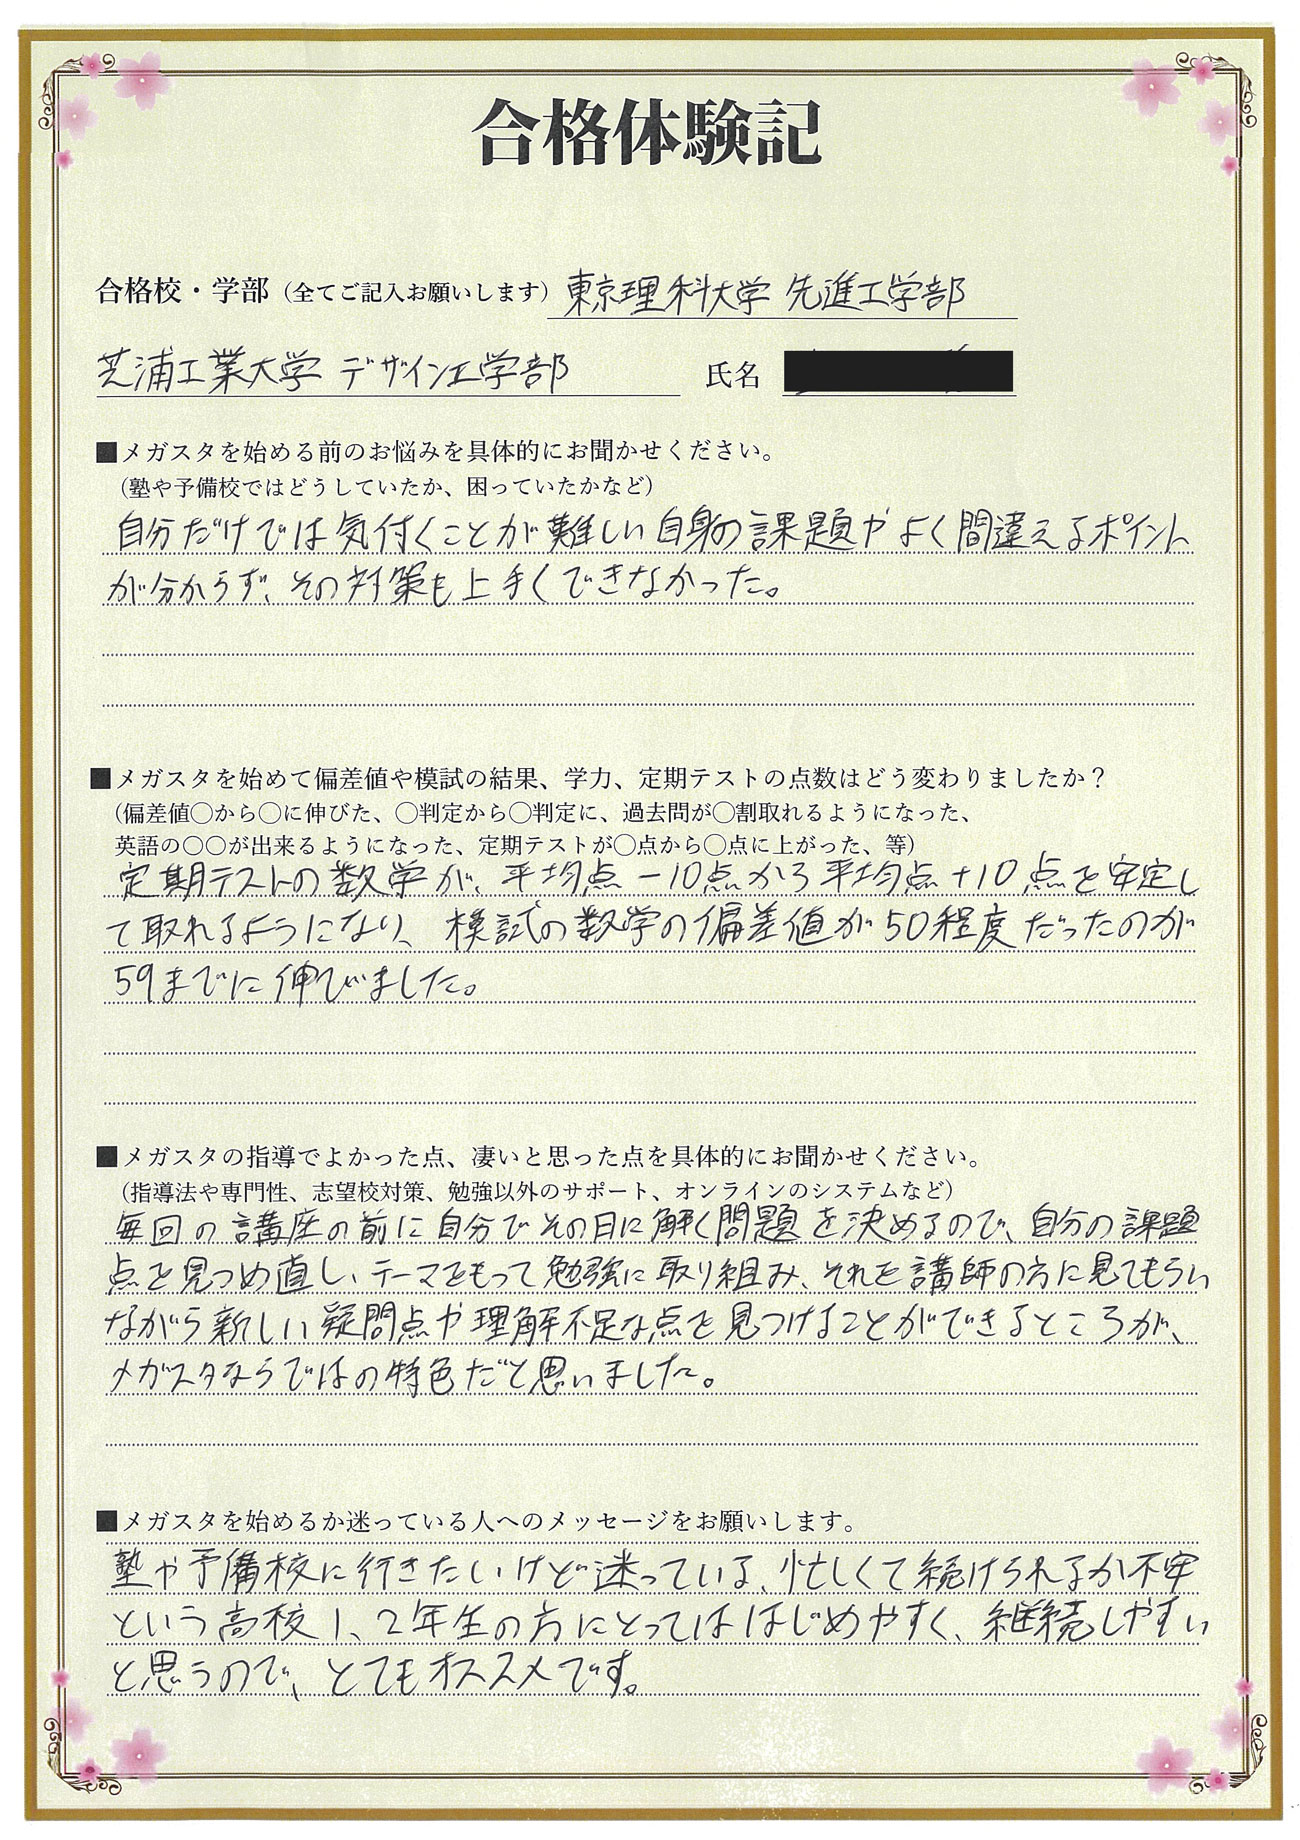 合格体験記
合格校・学部（全てご記入お願いします） 東京理科大学 先進工学部
芝浦工業大学 デザイン工学部 氏名
■メガスタを始める前のお悩みを具体的にお聞かせください。
（塾や予備校ではどうしていたか、困っていたかなど）
自分だけでは気付くことが難しい自身の課題やよく間違えるポイント
が分からず、その対策も上手くできなかった。
■メガスタを始めて偏差値や模試の結果、学力、定期テストの点数はどう変わりましたか？
（偏差値〇から〇に伸びた、〇判定から〇判定に、過去問が〇割取れるようになった、
英語の〇〇が出来るようになった、定期テストが〇点から〇点に上がった、等）
定期テストの数学が、平均点－10点から平均点＋10点を安定し
て取れるようになり、模試の数学の偏差値が50程度だったのが
59までに伸びました。
■メガスタの指導でよかった点、凄いと思った点を具体的にお聞かせください。
（指導法や専門性、志望校対策、勉強以外のサポート、オンラインのシステムなど）
毎回の講座の前に自分でその日に解く問題を決めるので、自分の課題
点を見つめ直し、テーマをもって勉強に取り組み、それを講師の方に見てもらい
ながら新しい疑問点や理解不足な点を見つけることができるところが、
メガスタならではの特色だと思いました。
■メガスタを始めるか迷っている人へのメッセージをお願いします。
塾や予備校に行きたいけど迷っている、忙しくて続けられるか不安
という高校1、2年生の方にとってははじめやすく、継続しやすい
と思うので、とてもオススメです。